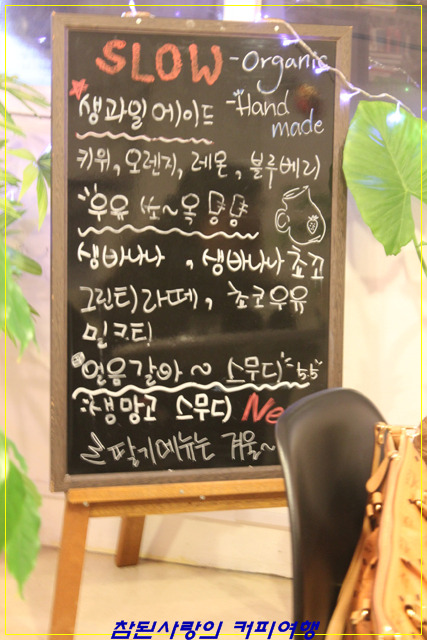 SLOW - Organic
- Hand made
생과일 에이드
키위, 오렌지, 레몬, 블루베리
우유 쏘~옥
생바나나, 생바나나쵸코
그린티라떼, 쵸코우유
밀크티
얼음갈아~ 스무디 5.5
생망고 스무디 Ne
딸기메뉴는 겨울~
참된사랑의 커피여행